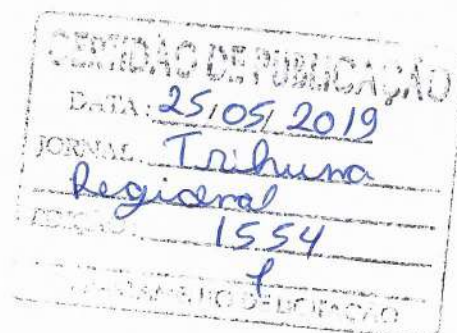 CERTIDÃO DE PUBLICAÇÃO
DATA: 25/05/2019
JORNAL: Tribuna
Regional
EDIÇÃO: 1554